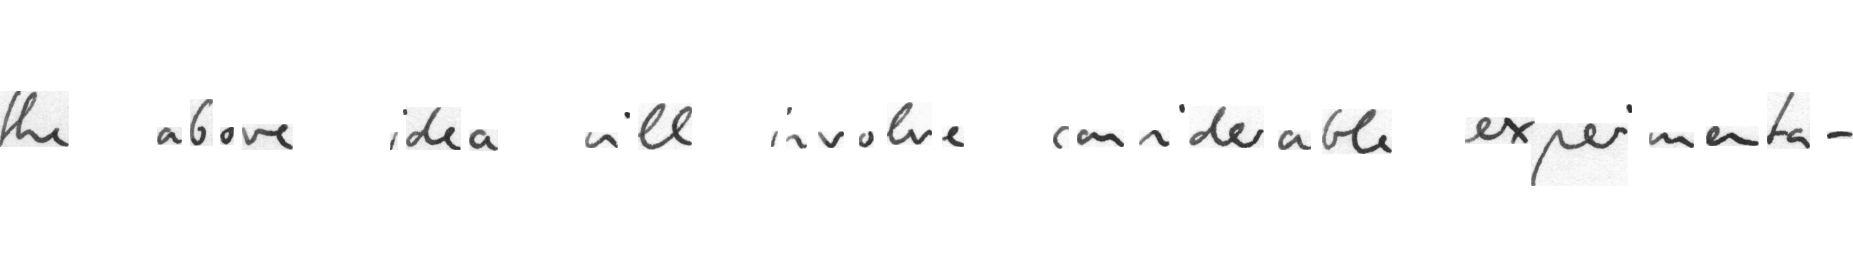 the above idea will involve considerable experimenta-